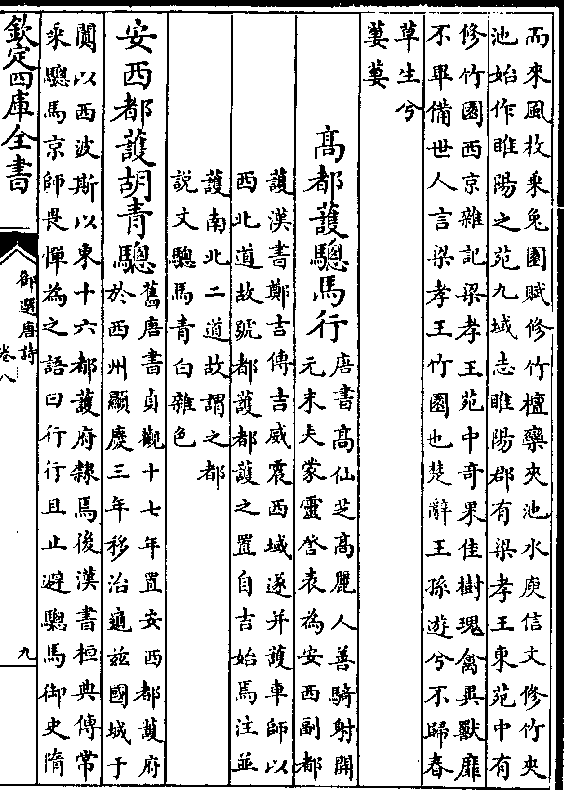 而來風枚乘兔園賦修竹檀欒夾池水庾信文修竹夾
池始作睢陽之苑九域志睢陽郡有梁孝王東苑中有
修竹園西京雜記梁孝王苑中奇果佳樹瑰禽異獸靡
不畢備世人言梁孝王竹園也楚辭王孫遊兮不歸春
草生兮
萋萋
高都護驄馬行
唐書高仙芝高麗人善騎射開
元末夫蒙靈詧表為安西副都
護漢書鄭吉傳吉威震西域遂并護車師以
西北道故號都護都護之置自吉始焉注並
護南北二道故謂之都
說文驄馬青白雜色
安西都護胡青驄
舊唐書貞觀十七年置安西都護府
於西州顯慶三年移治龜兹國城于
闐以西波斯以東十六都護府隸焉後漢書桓典傳常
乘驄馬京師畏憚為之語曰行行且止避驄馬御史隋
欽定四庫全書
御選唐詩
卷八
九